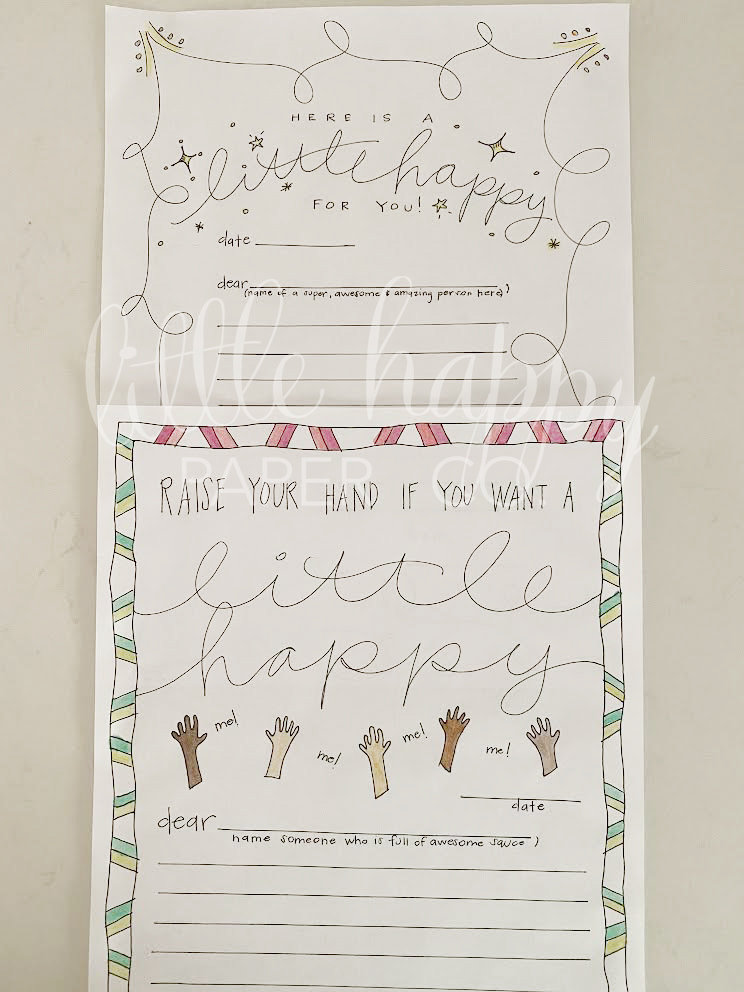 HERE IS A
little happy
FOR YOU!
date
dear
(name of a super, awesome & amazing person here)
little happy
PAPER CO.
RAISE YOUR HAND IF YOU WANT A
little
happy
me!
me!
me!
me!
date
dear
name someone who is full of awesome sauce )